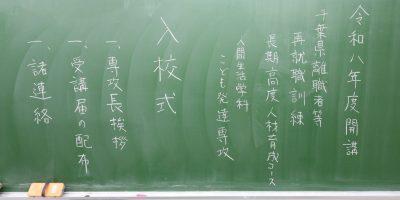 令和八年度開講
千葉県離職者等
再就職訓練
長期高度人材育成コース
人間生活学科
こども発達専攻
入校式
一、専攻長挨拶
一、受講届の配布
一、諸連絡